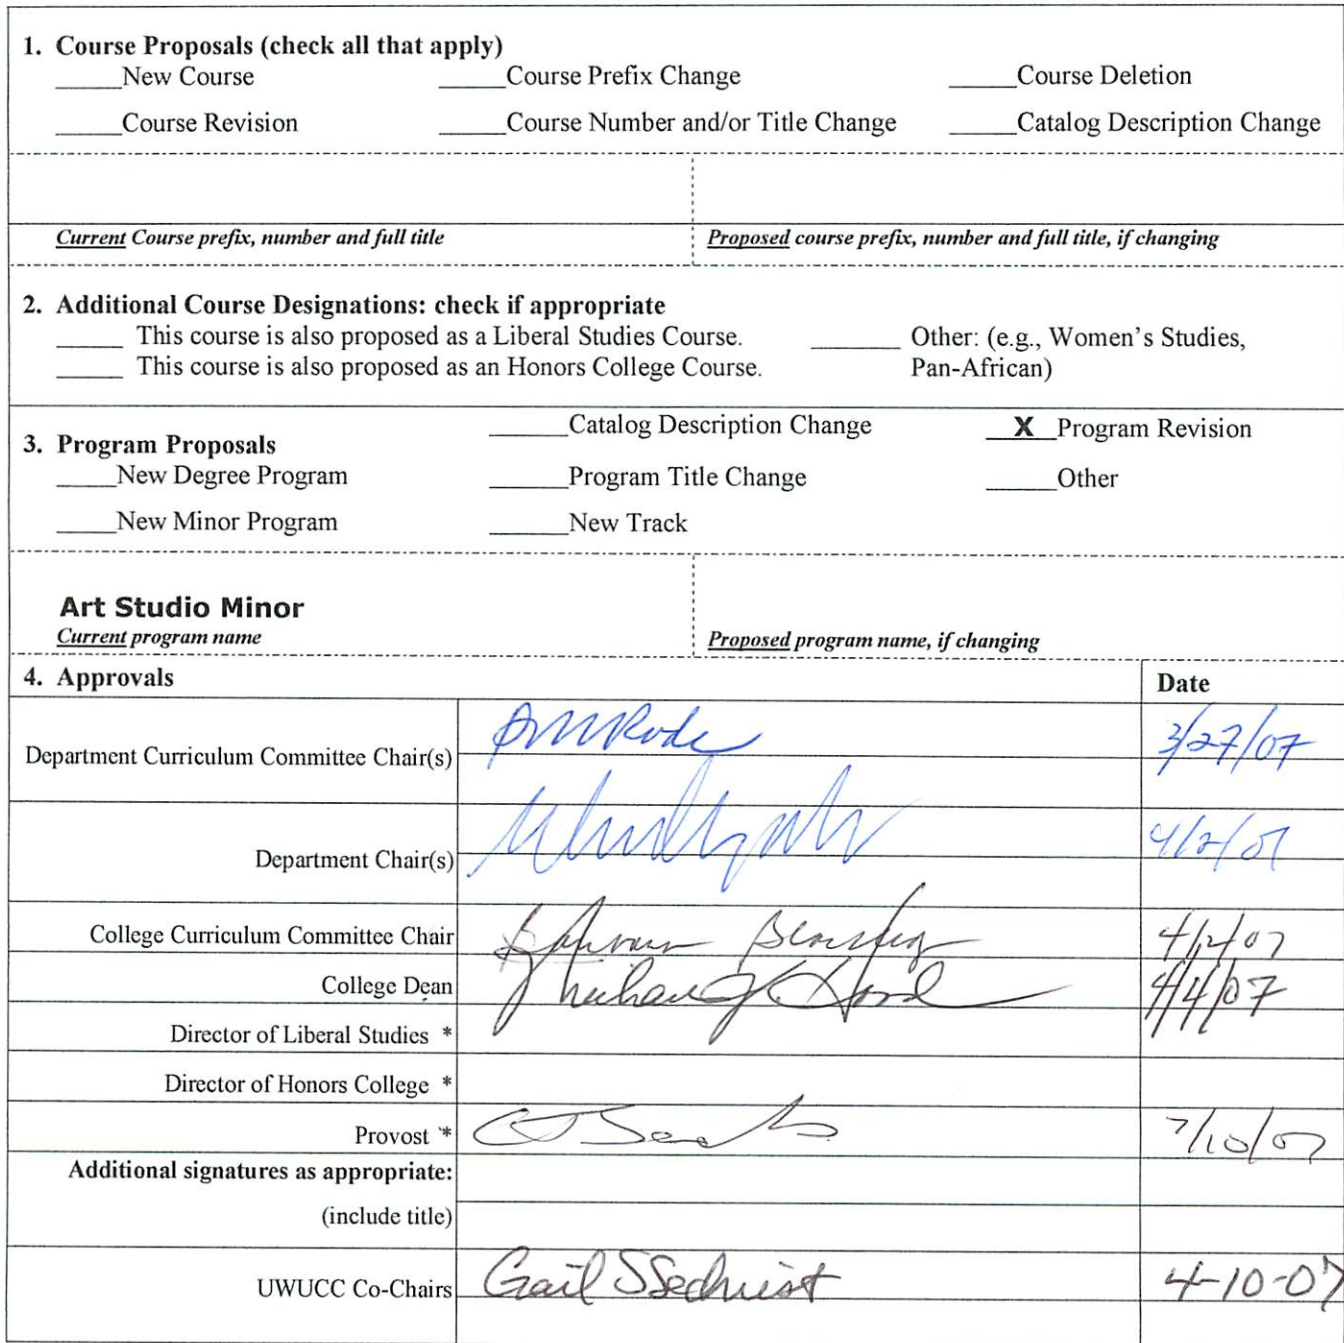 1. Course Proposals (check all that apply)
_____New Course _____Course Prefix Change _____Course Deletion
_____Course Revision _____Course Number and/or Title Change _____Catalog Description Change
Current Course prefix, number and full title Proposed course prefix, number and full title, if changing
2. Additional Course Designations: check if appropriate
_____ This course is also proposed as a Liberal Studies Course. _____ Other: (e.g., Women's Studies,
_____ This course is also proposed as an Honors College Course. Pan-African)
_____Catalog Description Change __X__Program Revision
3. Program Proposals
_____New Degree Program _____Program Title Change _____Other
_____New Minor Program _____New Track
Art Studio Minor
Current program name Proposed program name, if changing
4. Approvals Date
Department Curriculum Committee Chair(s) 3/27/07
Department Chair(s) 4/2/07
College Curriculum Committee Chair 4/2/07
College Dean 4/4/07
Director of Liberal Studies *
Director of Honors College *
Provost * 7/10/07
Additional signatures as appropriate:
(include title)
UWUCC Co-Chairs Gail S Sechrist 4-10-07